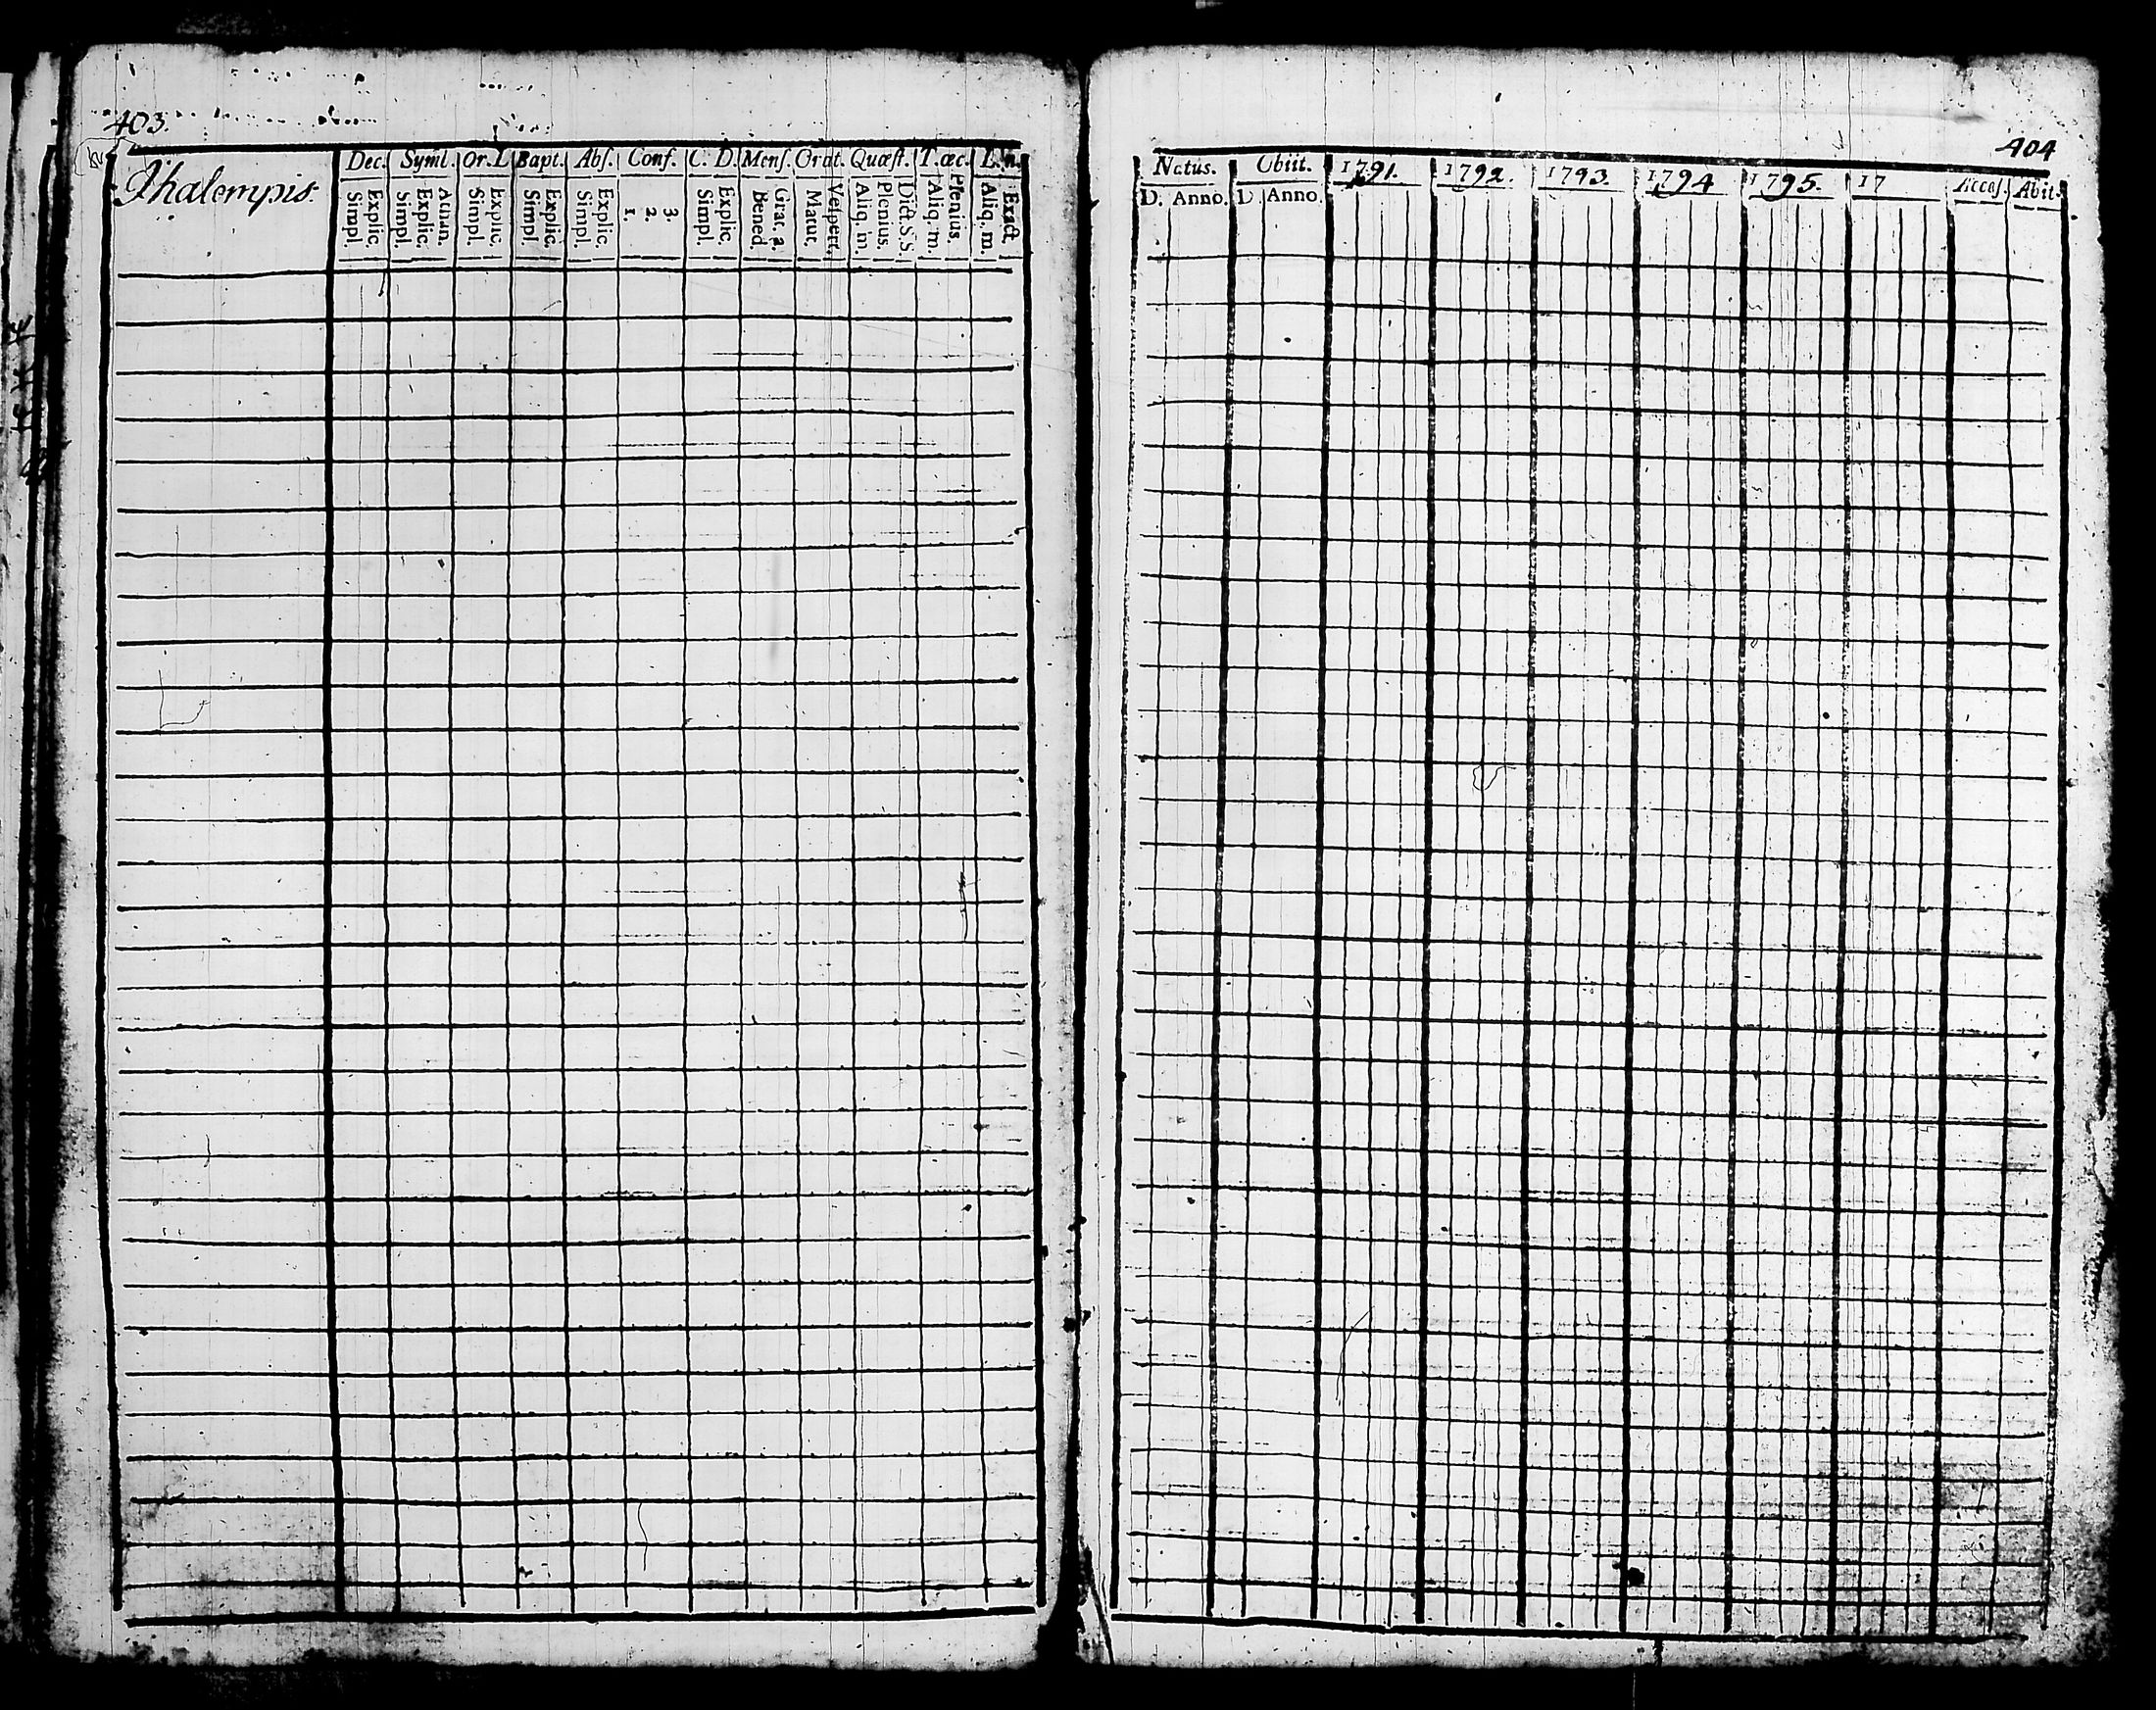 403.
Dec. Symb. Or. D. Bapt. Abſ. Conf. C. D. Menſ. Orat. Quæſt. T. œc. L. n.
Simpl. Explic. Simpl. Explic. Athan. Simpl. Explic. Simpl. Explic. Simpl. Explic. 1. 2. 3. Simpl. Explic. Bened. Grat. a. Matut. Veſpert. Aliq. m. Plenius. Dict. S. S. Aliq. m. Plenius. Aliq. m. Exact.
404
Natus. Obiit. 1791. 1792. 1793. 1794 1795. 17 Acceſ. Abit.
D. Anno. D. Anno.